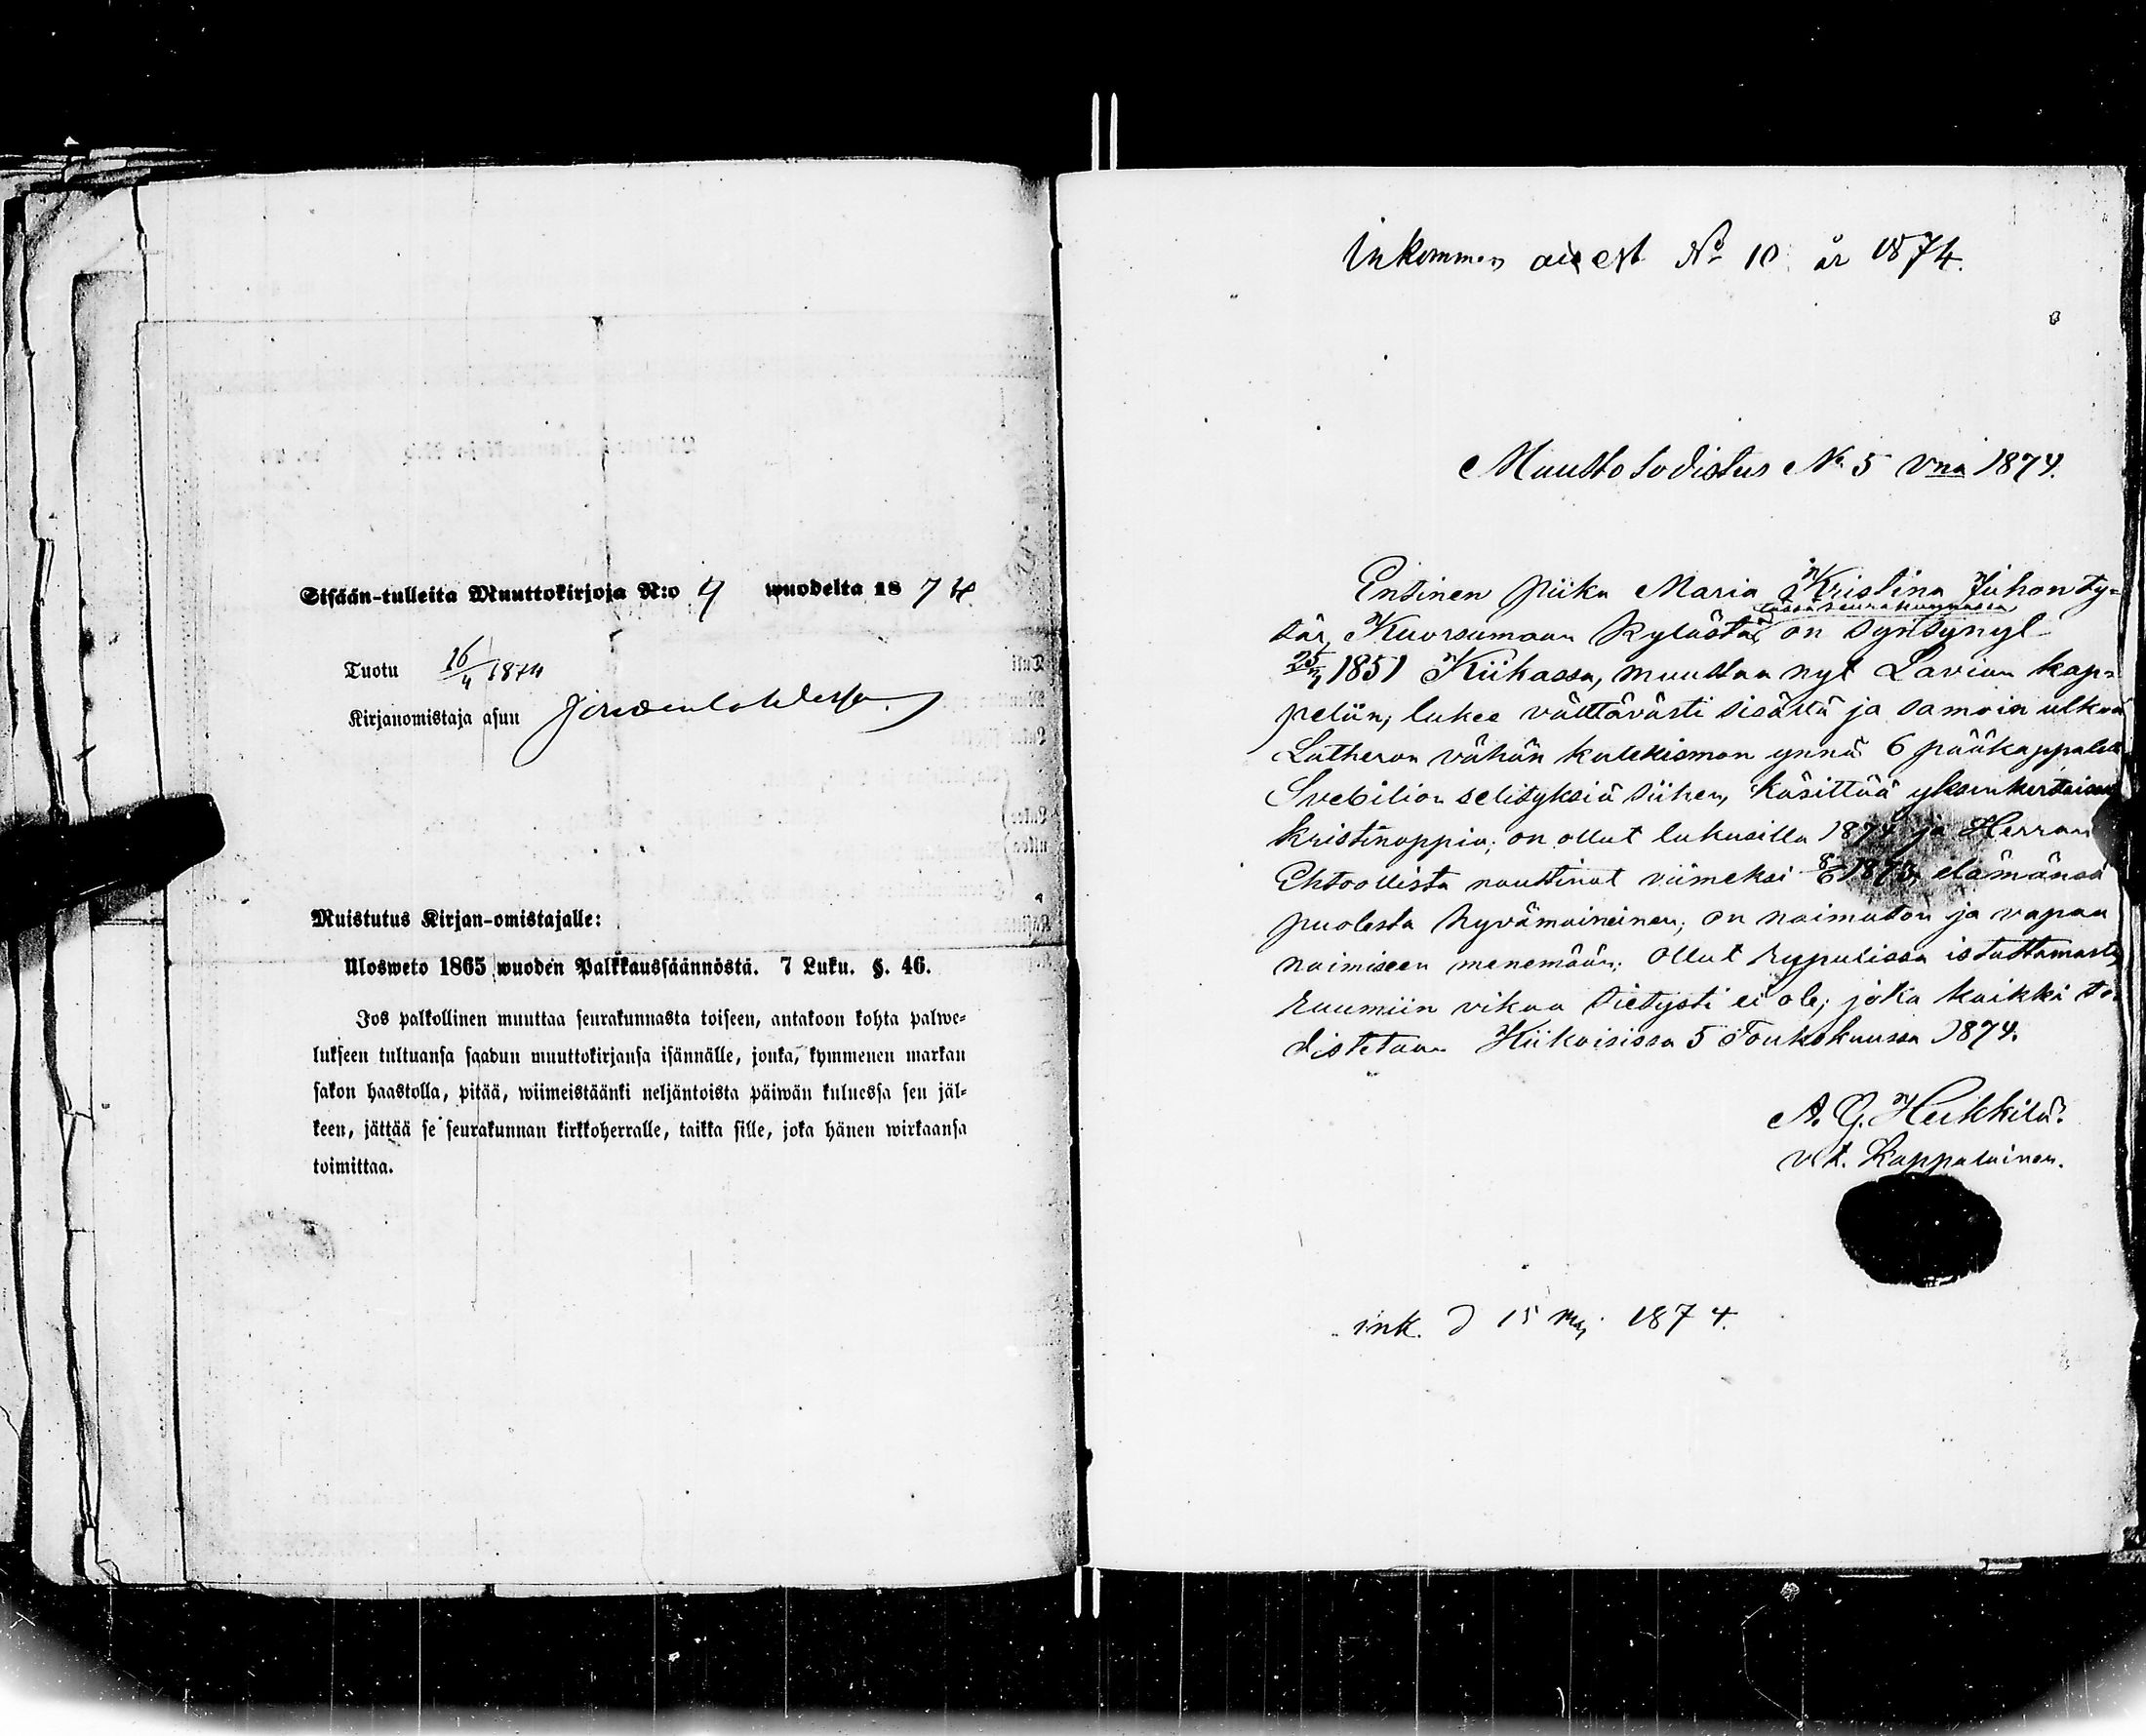 Sisään-tulleita Muuttokirjoja N:o 9 wuodelta 1874.
Tuotu 16/4 1874
Kirjanomistaja asuu
Muistutus Kirjan-omistajalle:
Ulosweto 1865 wuoden Palkkaussäännöstä. 7 Luku. §. 46.
Jos palkollinen muuttaa seurakunnasta toiseen, antakoon kohta palwe-
lukseen tultuansa saadun muuttokirjansa isännälle, jonka, kymmenen markan
sakon haastolla, pitää, wiimeistäänki neljäntoista päiwän kuluessa sen jäl-
keen, jättää se seurakunnan kirkkoherralle, taikka sille, joka hänen wirkaansa
toimittaa.
Inkommen attest No 10 år 1874.
Muutto todistus No 5 vna 1874.
Entinen piika Maria Kristina Juhonty-
tär, Kuorsumaan kylästä, on syntynyt
tässä seurakunnassa
1851 Kiikassa, muuttaa nyt Lavian kap-
peliin, lukee välttävästi sisältä ja samoin ulkoa
Lutheron vähän katekismon ynnä 6 pääkappaletta
Svebilion selityksiä siihen, käsittää yksinkertaisen
kristinoppia; on ollut lukusilla 1874 ja Herran
Ehtoollista nauttinut viimeksi 8/6 1873, elämänsä
puolesta hyvämaineinen; on naimaton ja vapaa
naimiseen menemään. Ollut rupulissa istuttamasta,
ruumiin vikaa tietysti ei ole; joka kaikki to-
distetaan Kiikoisissa 5 Toukokuussa 1874.
A. G. Heikkilä.
v. t. Kappalainen.
ink. d 15 Maj 1874.